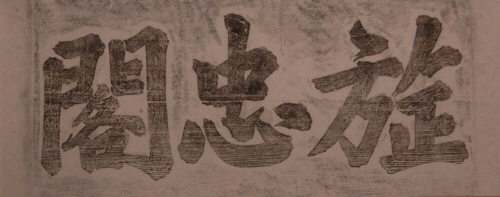 旌忠閣